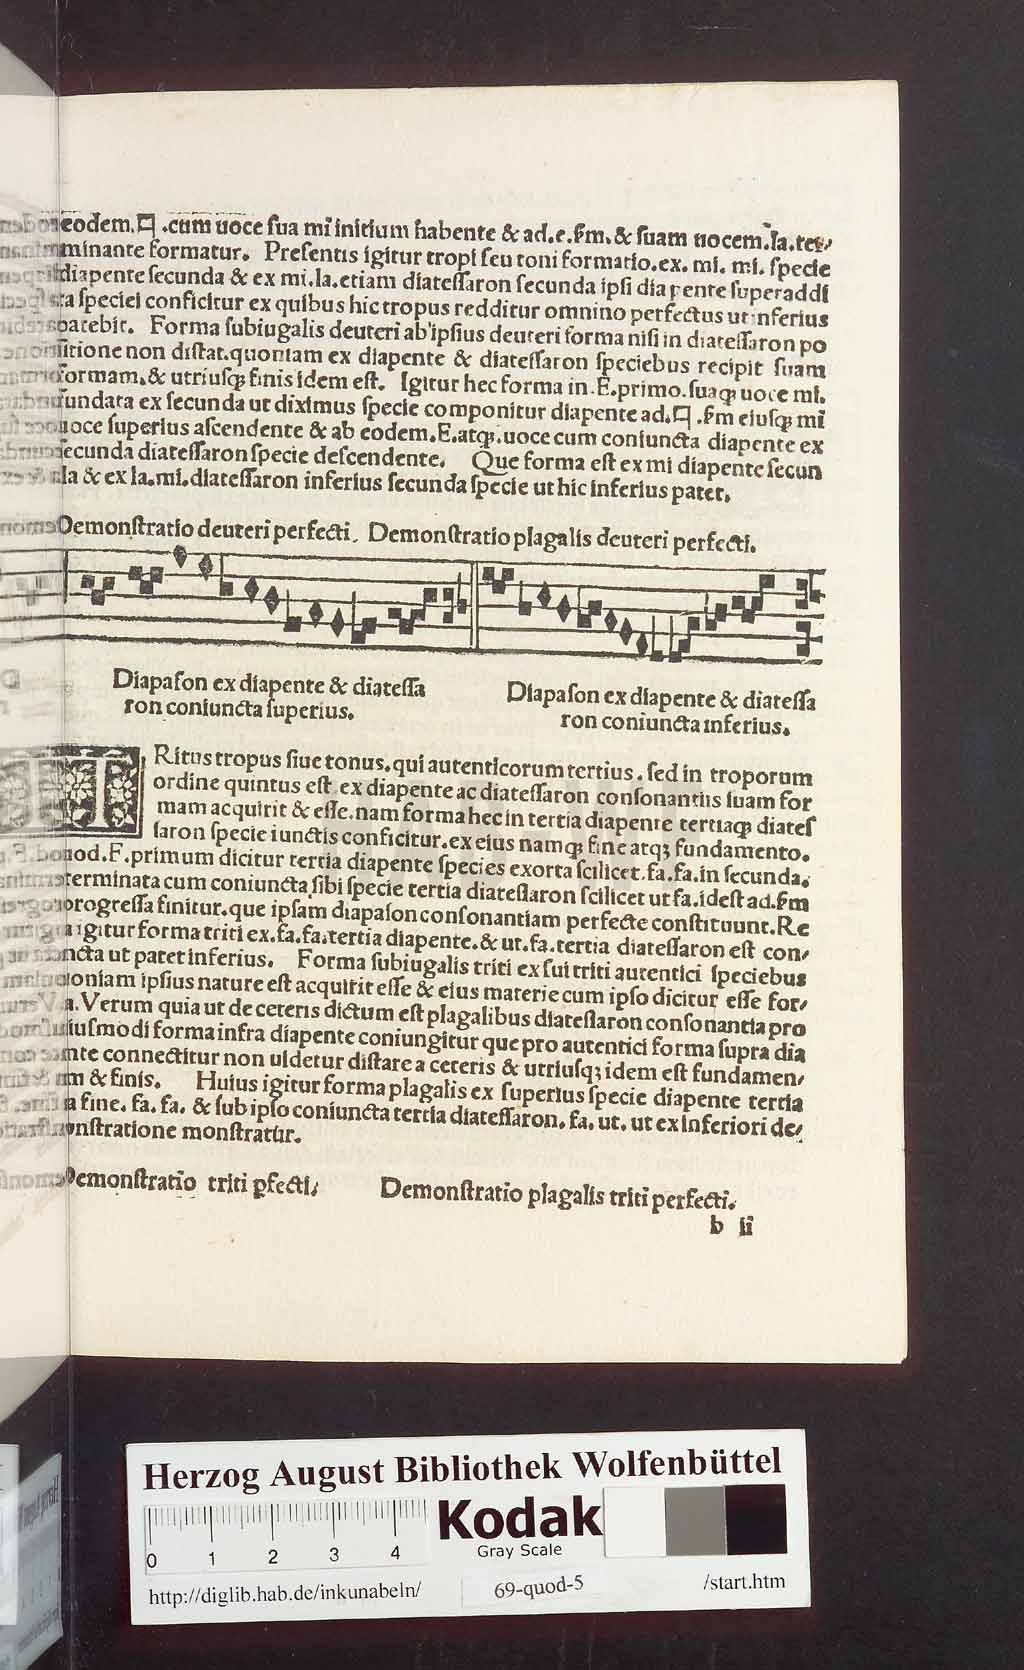 eodem.♮.cum uoce sua mi initium habente & ad.e.fm.& suam uocem.la.ter/
minante formatur. Presentis igitur tropi seu toni formatio.ex. mi. mi. specie
diapente secunda & ex mi.la.etiam diatessaron secunda ipsi diapente superaddi
ta speciei conficitur ex quibus hic tropus redditur omnino perfectus ut inferius
patebit. Forma subiugalis deuteri ab ipsius deuteri forma nisi in diatessaron po
sitione non distat.quoniam ex diapente & diatessaron speciebus recipit suam
formam.& utriusqꝫ finis idem est. Igitur hec forma in.E.primo.suaqꝫ uoce mi.
fundata ex secunda ut diximus specie componitur diapente ad.♮.fm eiusqꝫ mi
uoce superius ascendente & ab eodem.E.atqꝫ.uoce cum coniuncta diapente ex
secunda diatessaron specie descendente. Que forma est ex mi diapente secun
da & ex la.mi.diatessaron inferius secunda specie ut hic inferius patet.
Demonstratio deuteri perfecti. Demonstratio plagalis deuteri perfecti.
Diapason ex diapente & diatessa
ron coniuncta superius.
Diapason ex diapente & diatessa
ron coniuncta inferius.
TRitus tropus siue tonus.qui autenticorum tertius.sed in troporum
ordine quintus est ex diapente ac diatessaron consonantiis suam for
mam acquirit & esse.nam forma hec in tertia diapente tertiaqꝫ diates
saron specie iunctis conficitur.ex eius namqꝫ fine atqꝫ fundamento.
quod.F.primum dicitur tertia diapente species exorta scilicet.fa.fa.in secunda.
terminata cum coniuncta sibi specie tertia diatessaron scilicet ut fa.idest ad.fm
progressa finitur.que ipsam diapason consonantiam perfecte constituunt.Re
cta igitur forma triti ex.fa.fa.tertia diapente.& ut.fa.tertia diatessaron est con/
iuncta ut patet inferius. Forma subiugalis triti ex sui triti autentici speciebus
quoniam ipsius nature est acquirit esse & eius materie cum ipso dicitur esse for/
ma.Verum quia ut de ceteris dictum est plagalibus diatessaron consonantia pro
huiusmodi forma infra diapente coniungitur que pro autentici forma supra dia
pente connectitur non uidetur distare a ceteris & utriusqꝫ idem est fundamen/
tum & finis. Huius igitur forma plagalis ex superius specie diapente tertia
a fine. fa. fa. & sub ipso coniuncta tertia diatessaron. fa. ut. ut ex inferiori de/
monstratione monstratur.
Demonstratio triti ꝑfecti. Demonstratio plagalis triti perfecti.
b ii
Herzog August Bibliothek Wolfenbüttel
Kodak
Gray Scale
0 1 2 3 4
http://diglib.hab.de/inkunabeln/ 69-quod-5 /start.htm